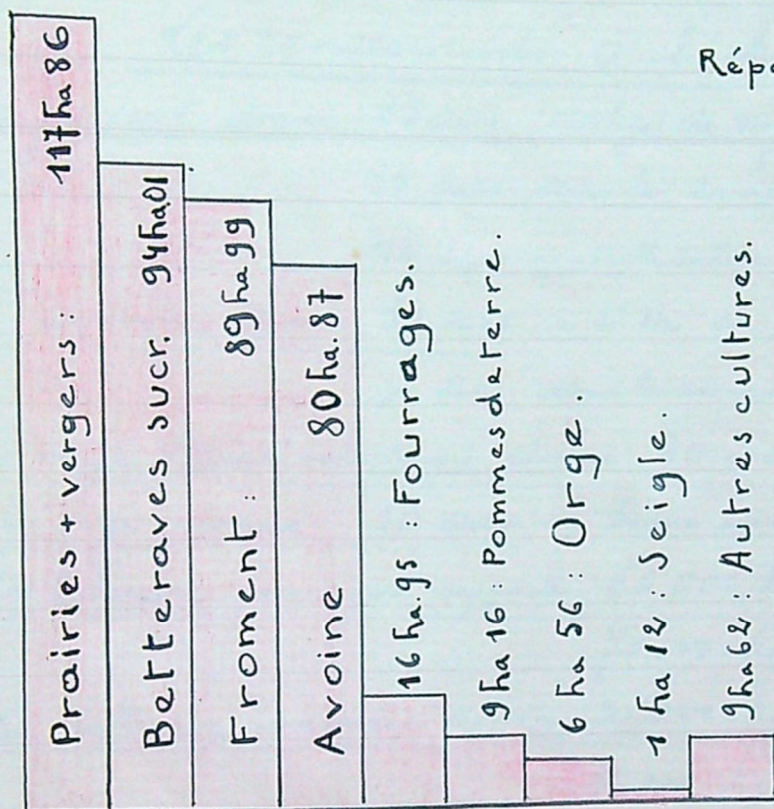 Prairies + vergers : 117 ha 86
Betteraves sucr. 94 ha 01
Froment : 89 ha 99
Avoine 80 ha. 87
16 ha. 95 : Fourrages.
9 ha 16 : Pommes de terre.
6 ha 56 : Orge.
1 ha 12 : Seigle.
9 ha 62 : Autres cultures.